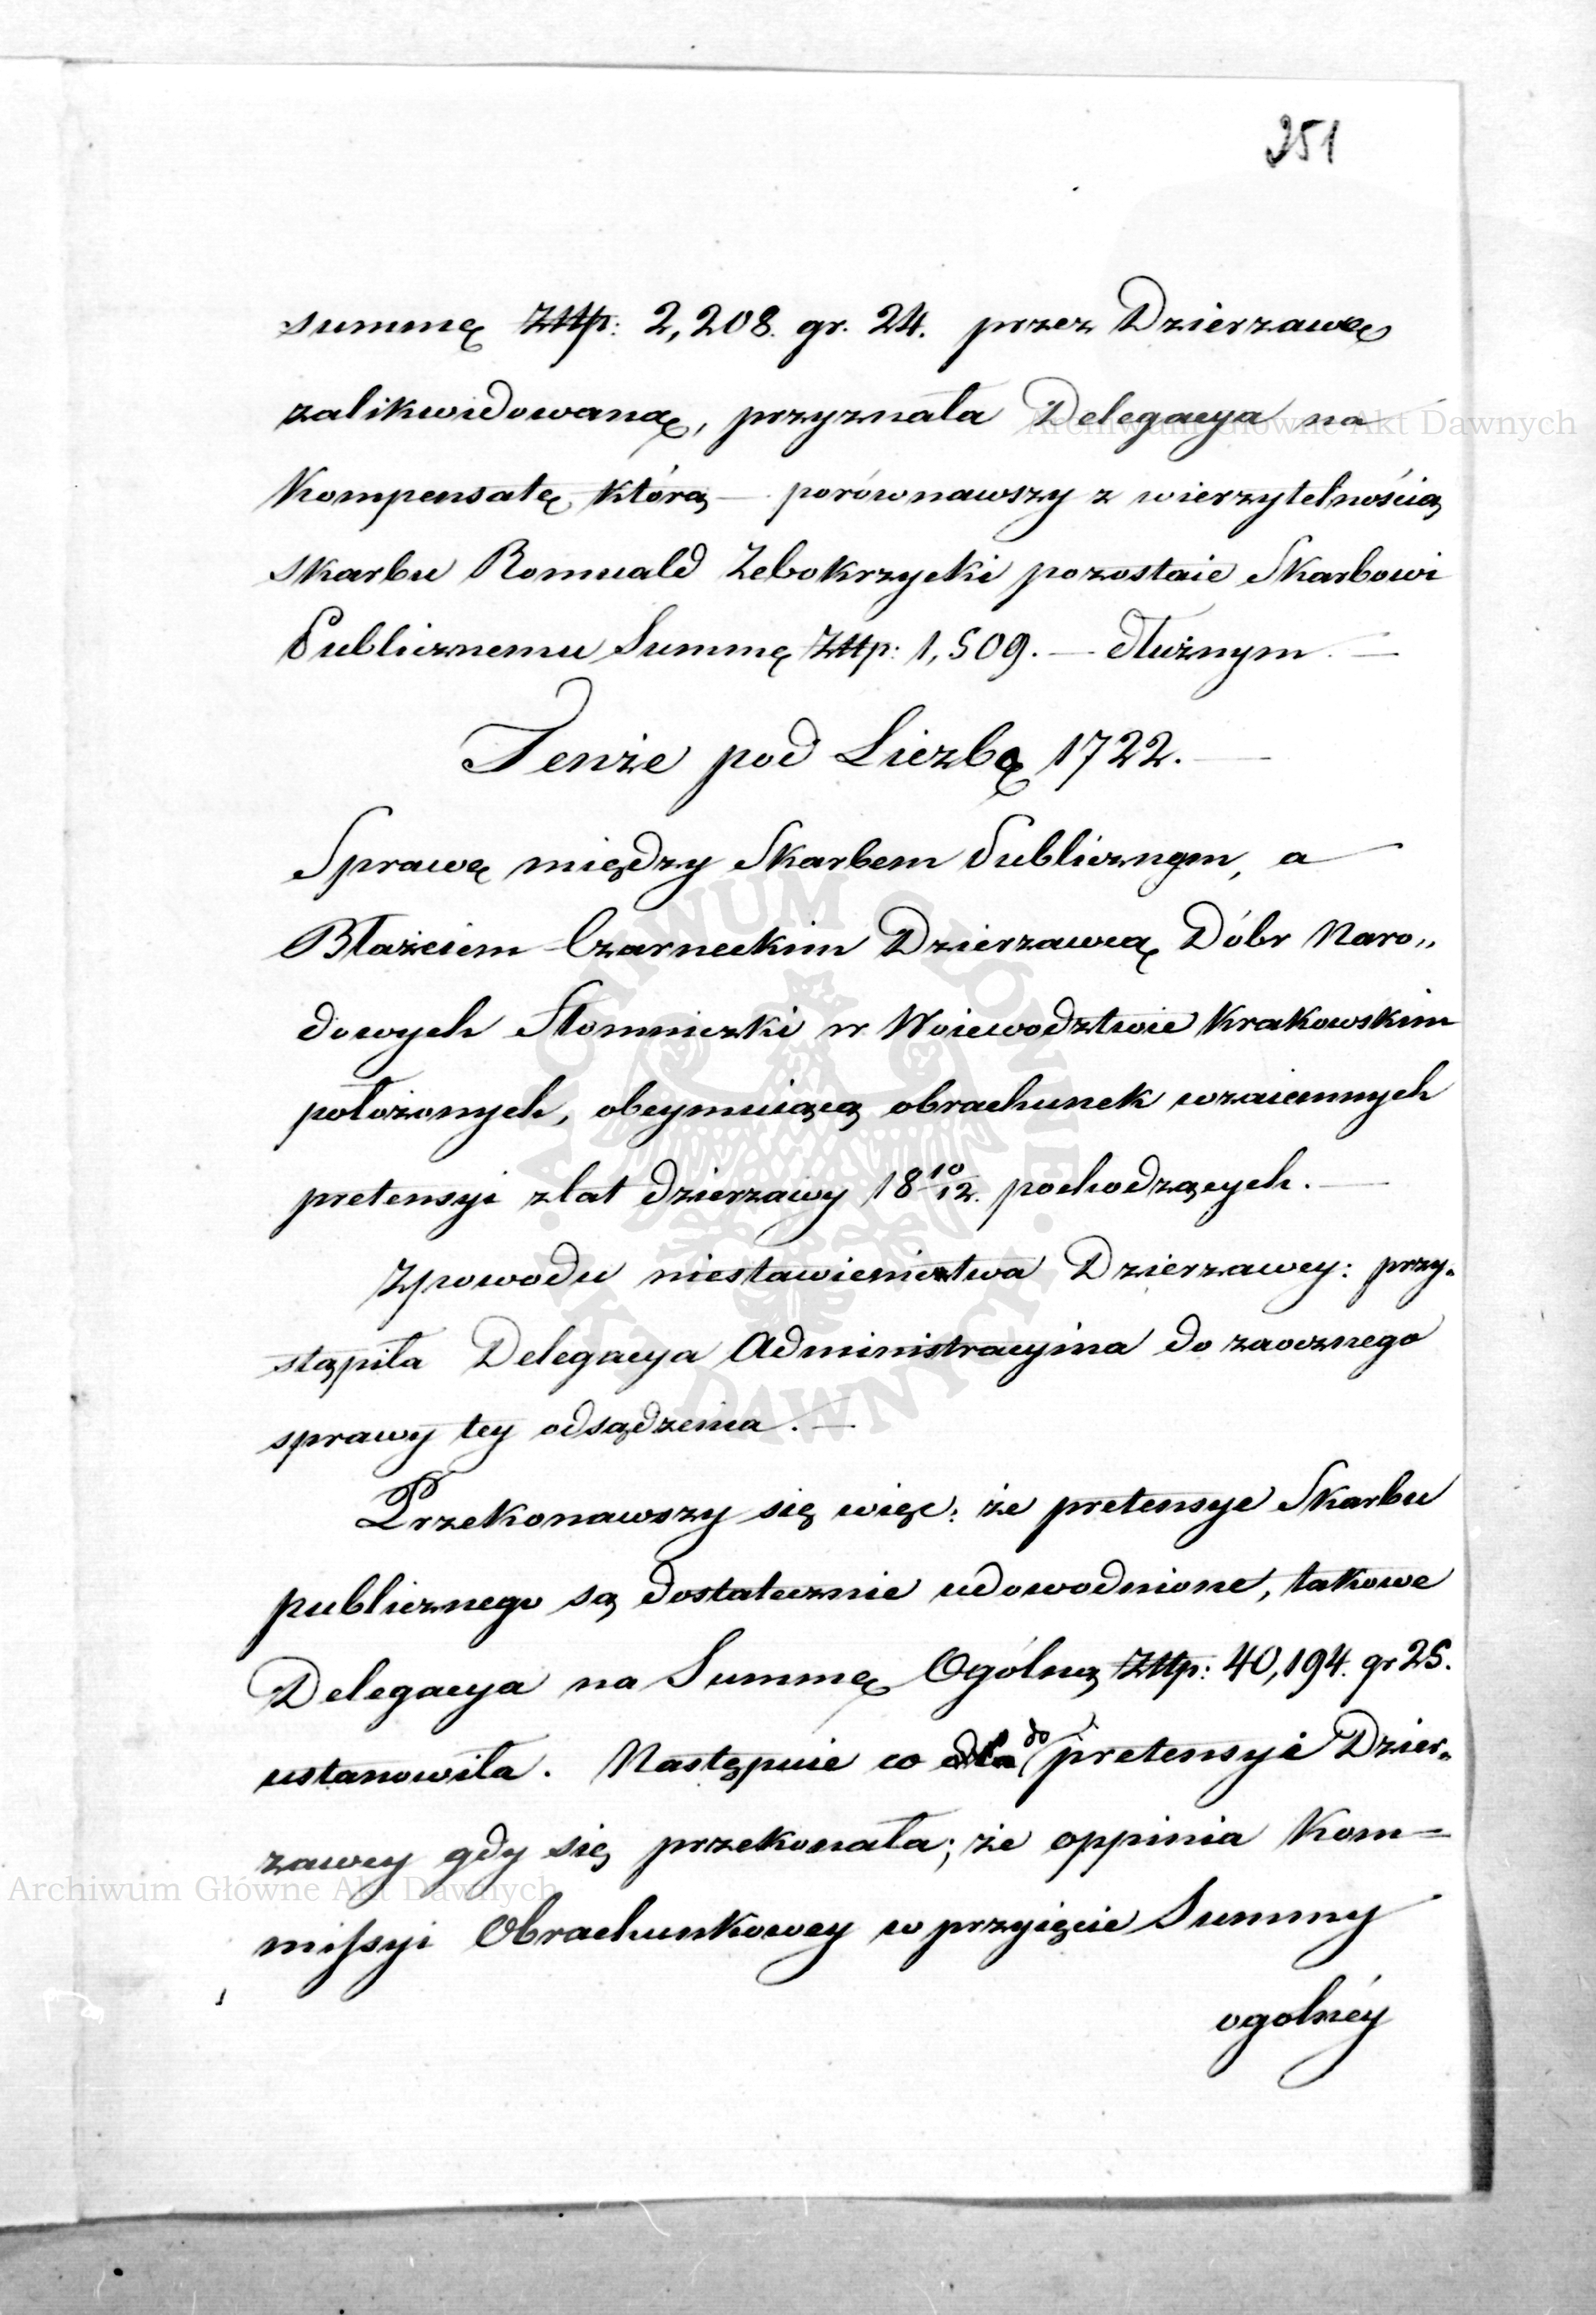 251
summę Złtp: 2,208. gr. 24. przez Dzierzawcę
zalikwidowaną, przyznała Delegacya na
Kompensatę którą — porównawszy z wierzytelnością
skarbu Romuald Zebokrzycki pozostaie Skarbowi
Publicznemu Summę Złtp: 1,509. — dłużnym. —
Tenże pod Liczbą 1722. —
Sprawę między Skarbem Publicznym, a
Błażeiem Czarneckim Dzierzawcą Dóbr Naro„
dowych Słomniczki w Woiewodztwie Krakowskim
położonych, obeymuiącą obrachunek wzaiemnych
pretensyi zlat dzierzawy 18 10/12. pochodzących. —
Zpowodu niestawienictwa Dzierzawcy: przy„
stąpiła Delegacya Administracyina do zaocznego
sprawy tey odsądzenia. —
Przekonawszy się więc: że pretensye Skarbu
publicznego są dostatecznie udowodnione, takowe
Delegacya na Summę Ogólną Złtp: 40,194. gr 25.
ustanowiła. Następnie co do pretensyi Dzier„
zawcy gdy się przekonała; że oppinia Kom=
missyi Obrachunkowey w przyięcie Summy
ogolnéy
Archiwum Główne Akt Dawnych
Archiwum Główne Akt Dawnych
ARCHIWUM GŁÓWNE AKT DAWNYCH